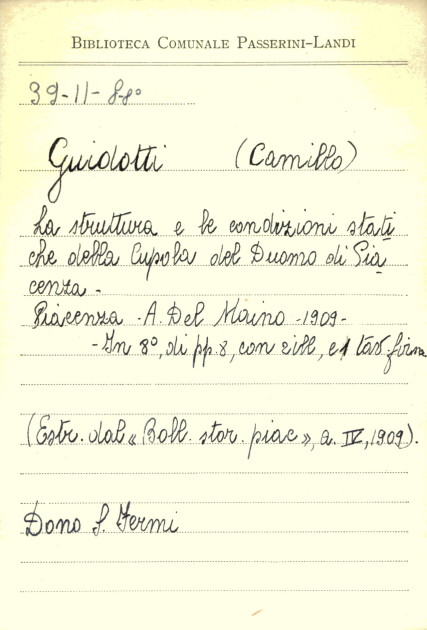 BIBLIOTECA COMUNALE PASSERINI-LANDI
39-11-
Guidotti (Camillo)
La struttura e le condizioni stati
che della Cupola del Duomo di Pia
cenza -
Piacenza - A. Del Maino - 1909 -
- In 8°, di pp. 8, con ill, e 1 tav.
(Estr. dal « Boll. stor. piac », a. IV, 1909).
Dono S. Fermi